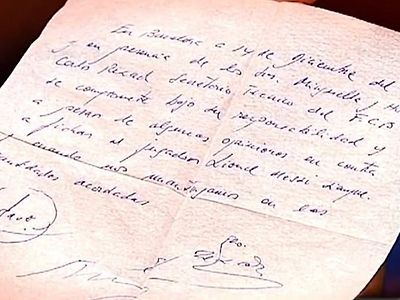 En Barcelona a 14 de diciembre del
y en presencia de los Sres. Minguella y
Carles Rexach Secretario Técnico del F.C.B
se compromete bajo su responsabilidad y
a pesar de algunas opiniones en contra
a fichar al jugador Lionel Messi siempre
y cuando nos mantengamos en las
cantidades acordadas